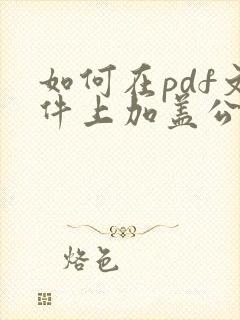 如何在pdf文
件上加盖公
烙色